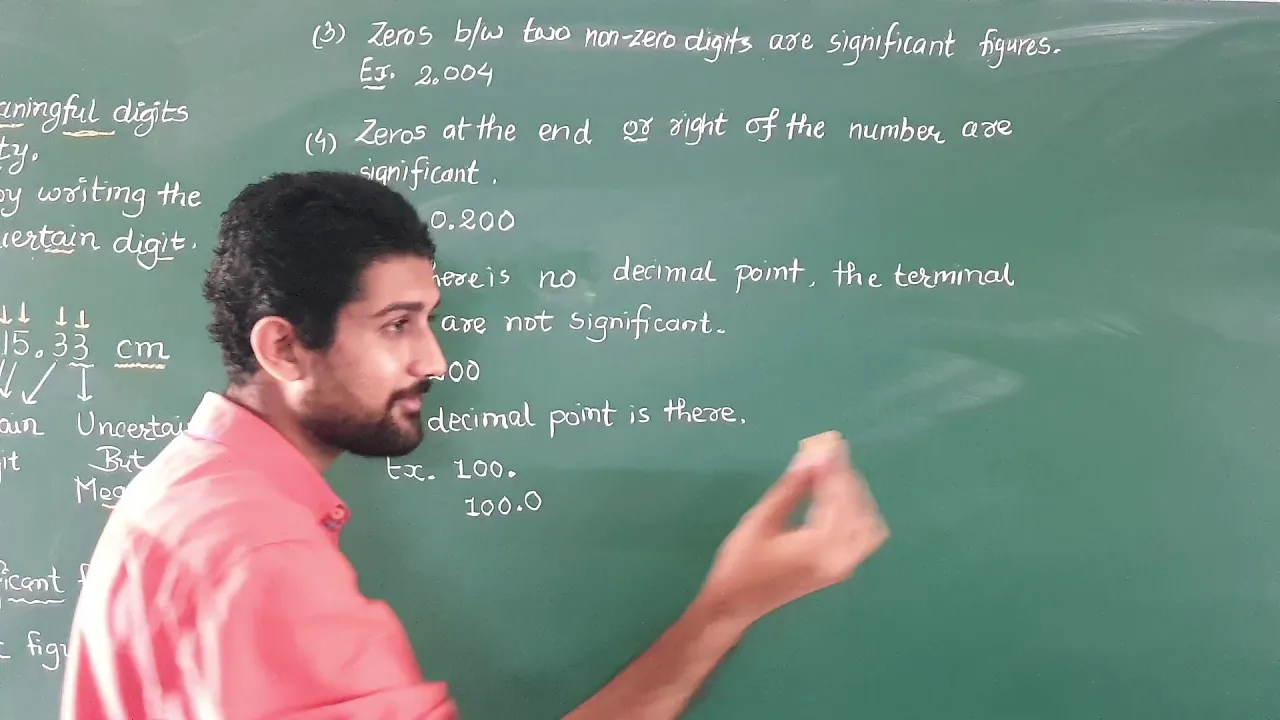 meaningful digits
ty.
by writing the
certain digit.
15.33 cm
ain Uncertai
git But
Me
ficant f
figu
(3) Zeros b/w two non-zero digits are significant figures.
Ex. 2.004
(4) Zeros at the end or right of the number are
significant.
0.200
here is no decimal point, the terminal
are not significant.
200
decimal point is there.
Ex. 100.
100.0